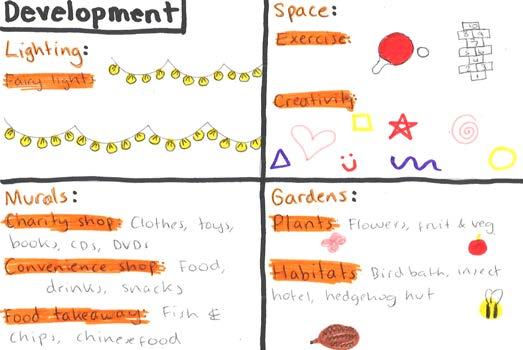 Development
Lighting:
Fairy lights
Space:
Exercise:
Creativity:
Murals:
Charity shop: Clothes, toys,
books, CDs, DVDs
Convenience shop: Food,
drinks, snacks
Food takeaway: Fish &
chips, chinese food
Gardens:
Plants: Flowers, fruit & veg
Habitats: Bird bath, insect
hotel, hedgehog hut